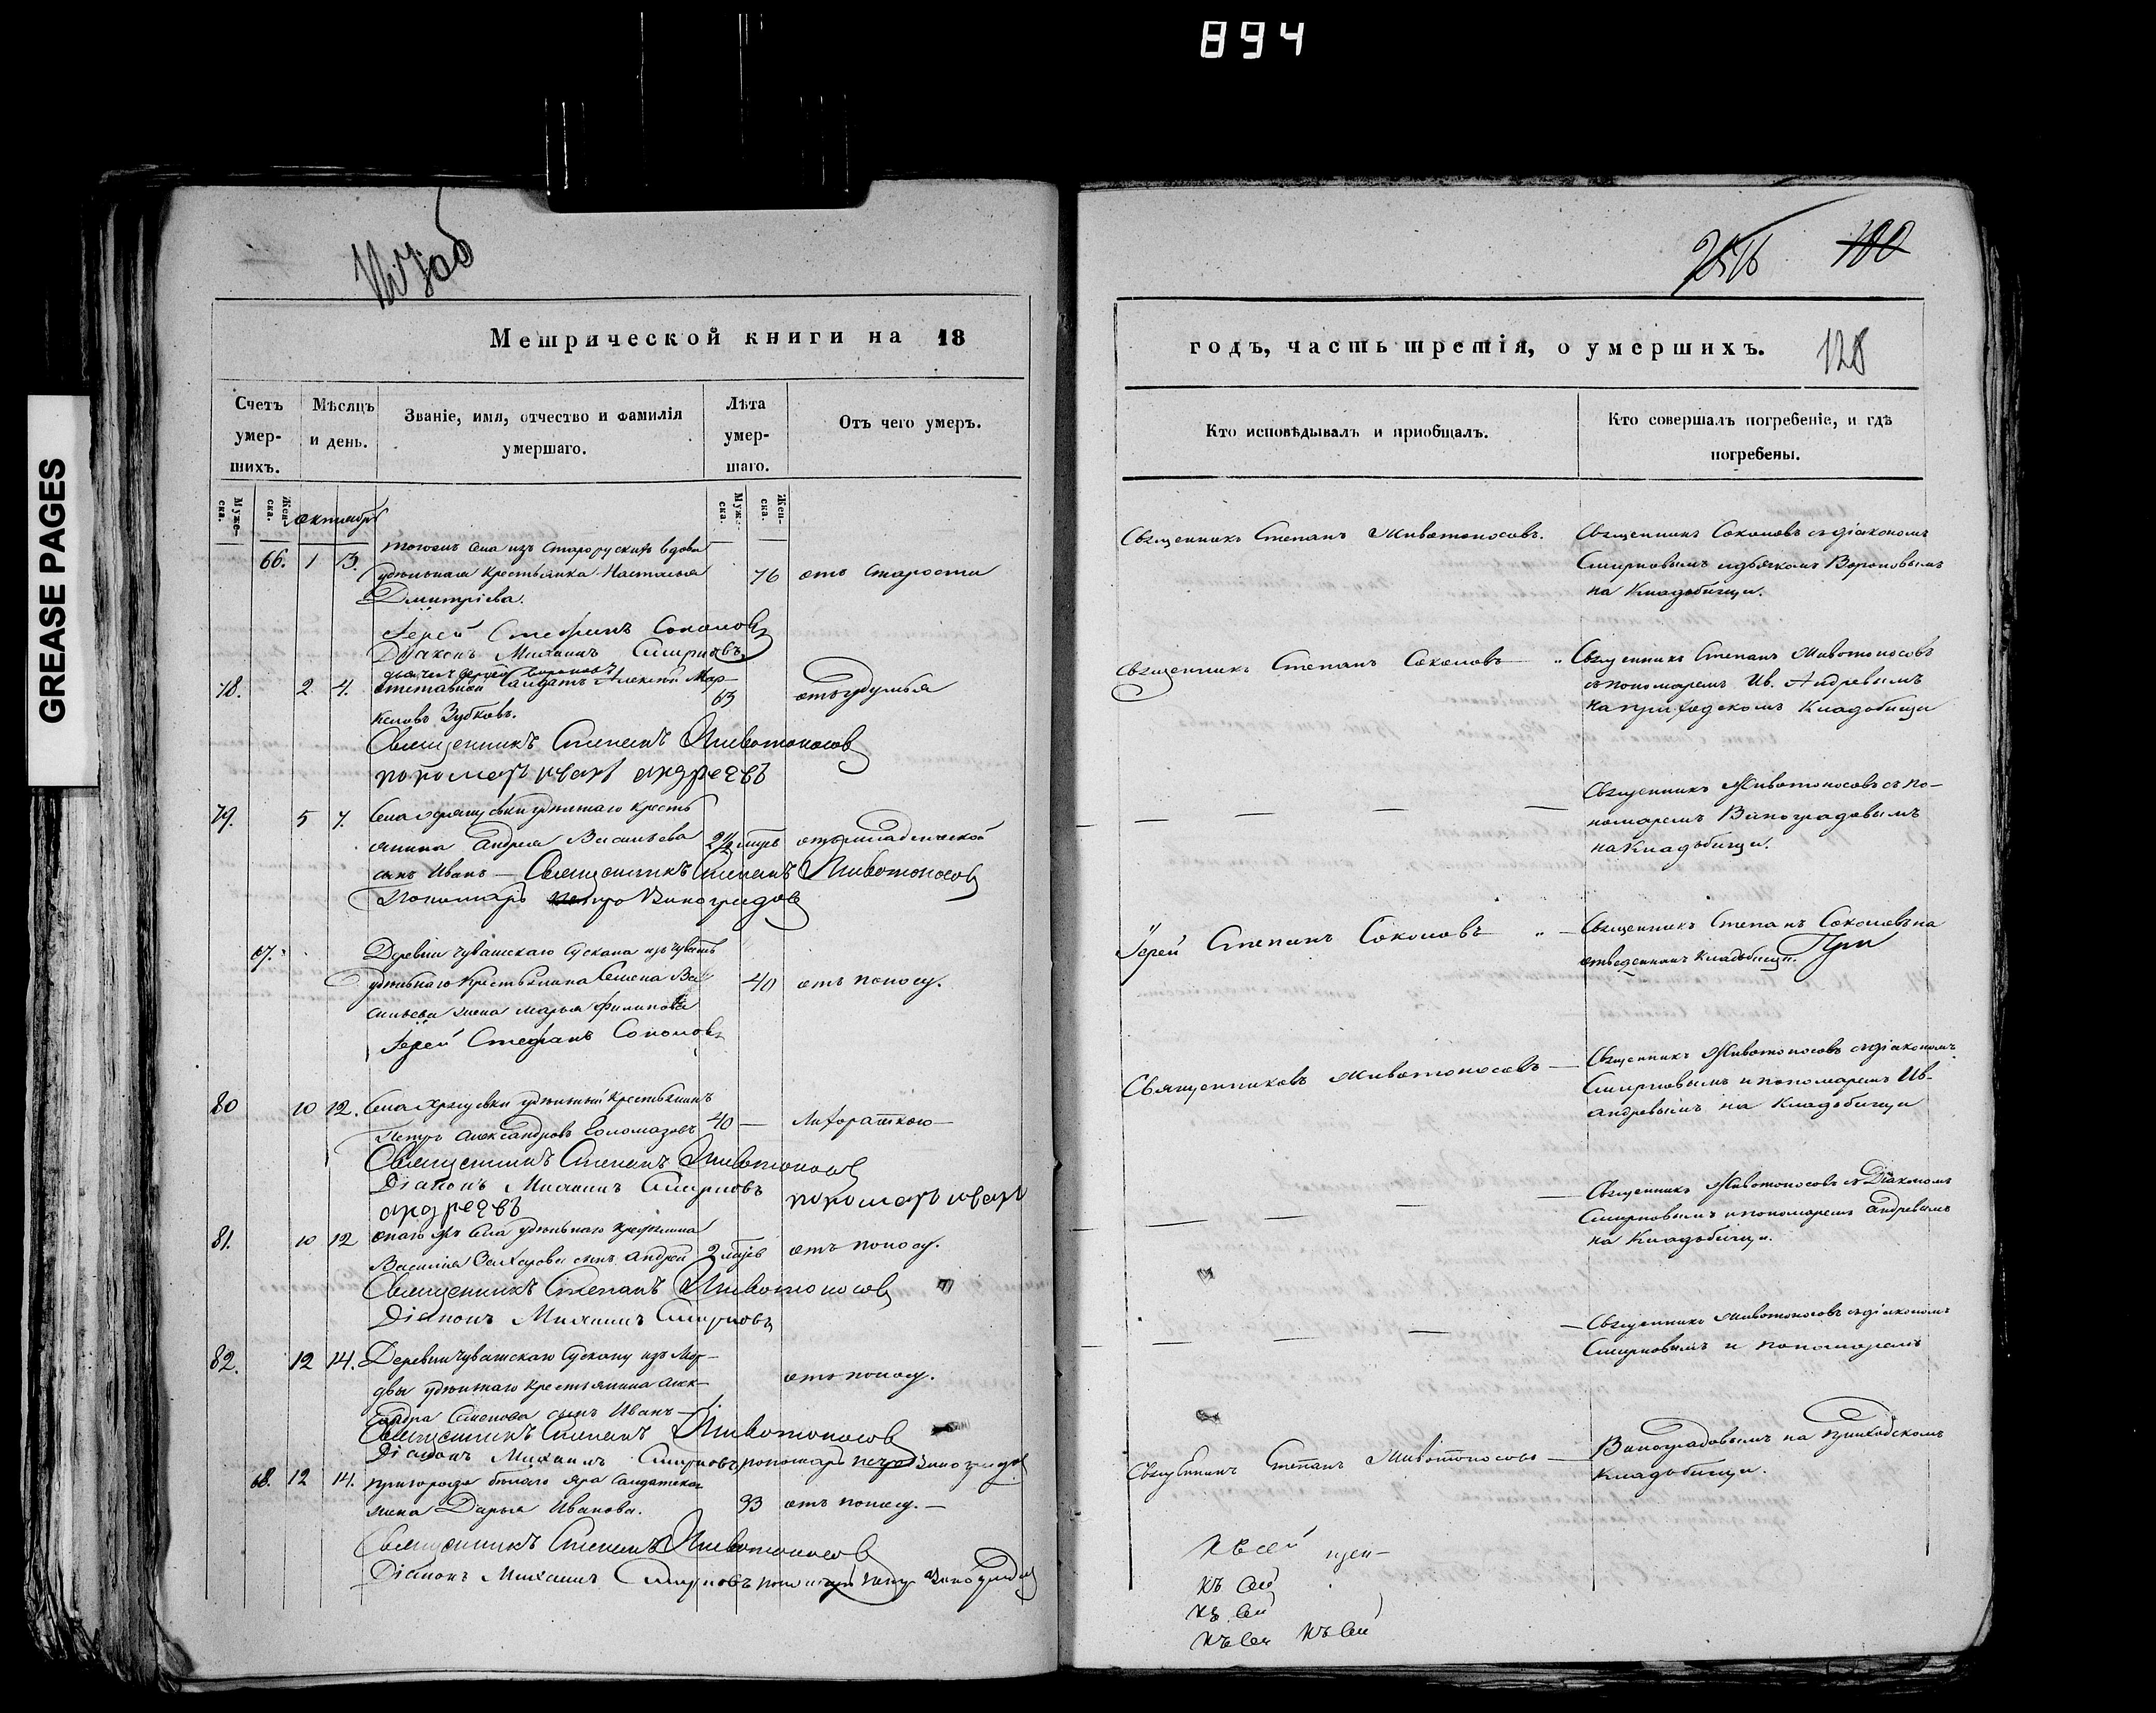 894
GREASE PAGES
100
128
Метрической книги на 18
годъ, часть третія, о умершихъ.
Счетъ умер-шихъ.
Мѣсяцъ и день.
Званіе, имя, отчество и фамилія умершаго.
Лѣта умер-шаго.
Отъ чего умеръ.
Кто исповѣдывалъ и приобщалъ.
Кто совершалъ погребеніе, и гдѣ погребены.
Муже-ска.
Жен-ска.
октиабрь
Муже-ска.
Жен-ска.
66. 1 3.
села изъ старорускихъ вдова
удѣльная крестьянка Насталья
Дмитріева.
76 отъ старости
Священникъ Степанъ Животоносовъ.
Священникъ Соколовъ съ діакономъ
Смирновымъ и дьячкомъ Вороновымъ
на кладбищи.
Іерей Стефанъ Соколовъ
Діаконъ Михаилъ Смирновъ
78. 2 4.
отставной салдатъ Алексей Мар-
келовъ Зубковъ.
63
Священникъ Степанъ Соколовъ
Священникъ Степанъ Животоносовъ
съ пономаремъ Ив. Андревымъ
на приходскомъ кладбищи
Священникъ Степанъ Животоносовъ
пономарь иванъ андреевъ
79. 5 7.
Села удѣльнаго кресть
янина Андрея Васильева
сынъ Иванъ — Священникъ Степанъ Животоносовъ
2 1/2 отъ младенческой
Священникъ Животоносовъ съ по-
номаремъ Виноградовымъ
на кладбищи.
Пономарь Виноградовъ
67.
Деревни Чувашскаго Сускана изъ чувашъ
удѣльнаго крестьянина Семена Ва-
сильева жена Марья Филипова
40 отъ поносу.
Іерей Степанъ Соколовъ
Священникъ Степанъ Соколовъ на
отведенномъ кладбищи.
Іерей Стефанъ Соколовъ
80 10 12.
Села Хрящевки удѣльный крестьянинъ
Петръ Александровъ Соломазовъ
40 — Лихораткою —
Священниковъ Животоносовъ —
Священникъ Животоносовъ съ діакономъ
Смирновымъ и пономаремъ Ив-
андревымъ на кладбищи
Священникъ Степанъ Животоносовъ
Діаконъ Михаилъ Смирновъ пономарь иванъ
андреевъ
81. 10 12
онаго жъ села удѣльнаго крестьянина
Василія Захарова сынъ Андрей
2 отъ поносу.
Священникъ Животоносовъ съ Діакономъ
Смирновымъ и пономаремъ Андревымъ
на кладбищи.
Священникъ Степанъ Животоносовъ
Діаконъ Михаилъ Смирновъ
82. 12 14.
Деревни Чувашскаго Сускану изъ Мор-
двы удѣльнаго крестьянина Алек-
сандра Семенова сынъ Иванъ —
отъ поносу.
Священникъ Животоносовъ съ діакономъ
Смирновымъ и пономаремъ
Виноградовымъ на приходскомъ
кладбищи.
Священникъ Степанъ Животоносовъ
Діаконъ Михаилъ Смирновъ пономарь петръ Виноградовъ
68. 12 14.
пригорода бѣлаго яра салдатская
жена Дарья Иванова.
93 отъ поносу. —
Священникъ Степанъ Животоносовъ
Священникъ Степанъ Животоносовъ
Діаконъ Михаилъ Смирновъ пономарь петръ Виноградовъ